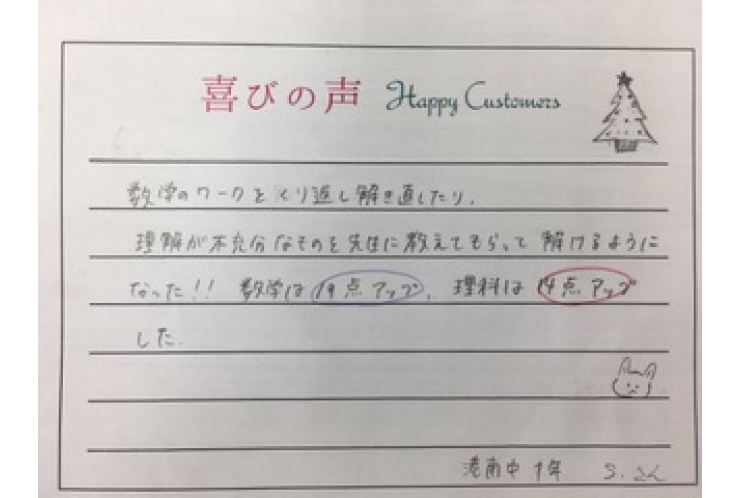 喜びの声 Happy Customers
数学のワークをくり返し解き直したり、
理解が不充分なものを先生に教えてもらって 解けるように
なった!! 数学は 19点アップ、理科は 14点アップ
した.
港南中 年 S.さん